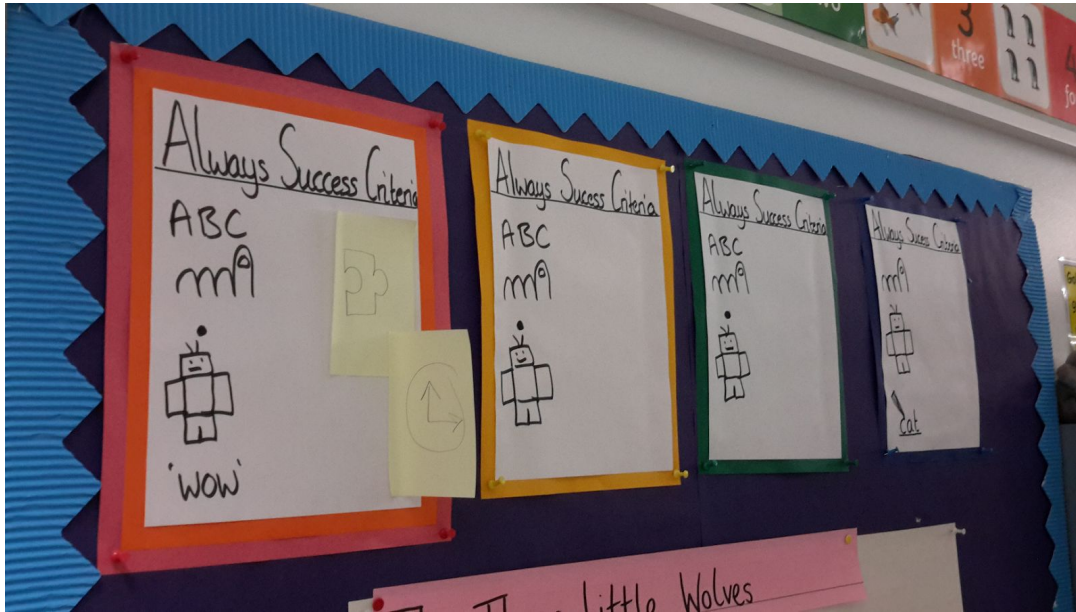 3
three
Always Success Criteria
ABC
'WOW'
Always Success Criteria
ABC
Always Success Criteria
ABC
Always Success Criteria
cat
Little Wolves